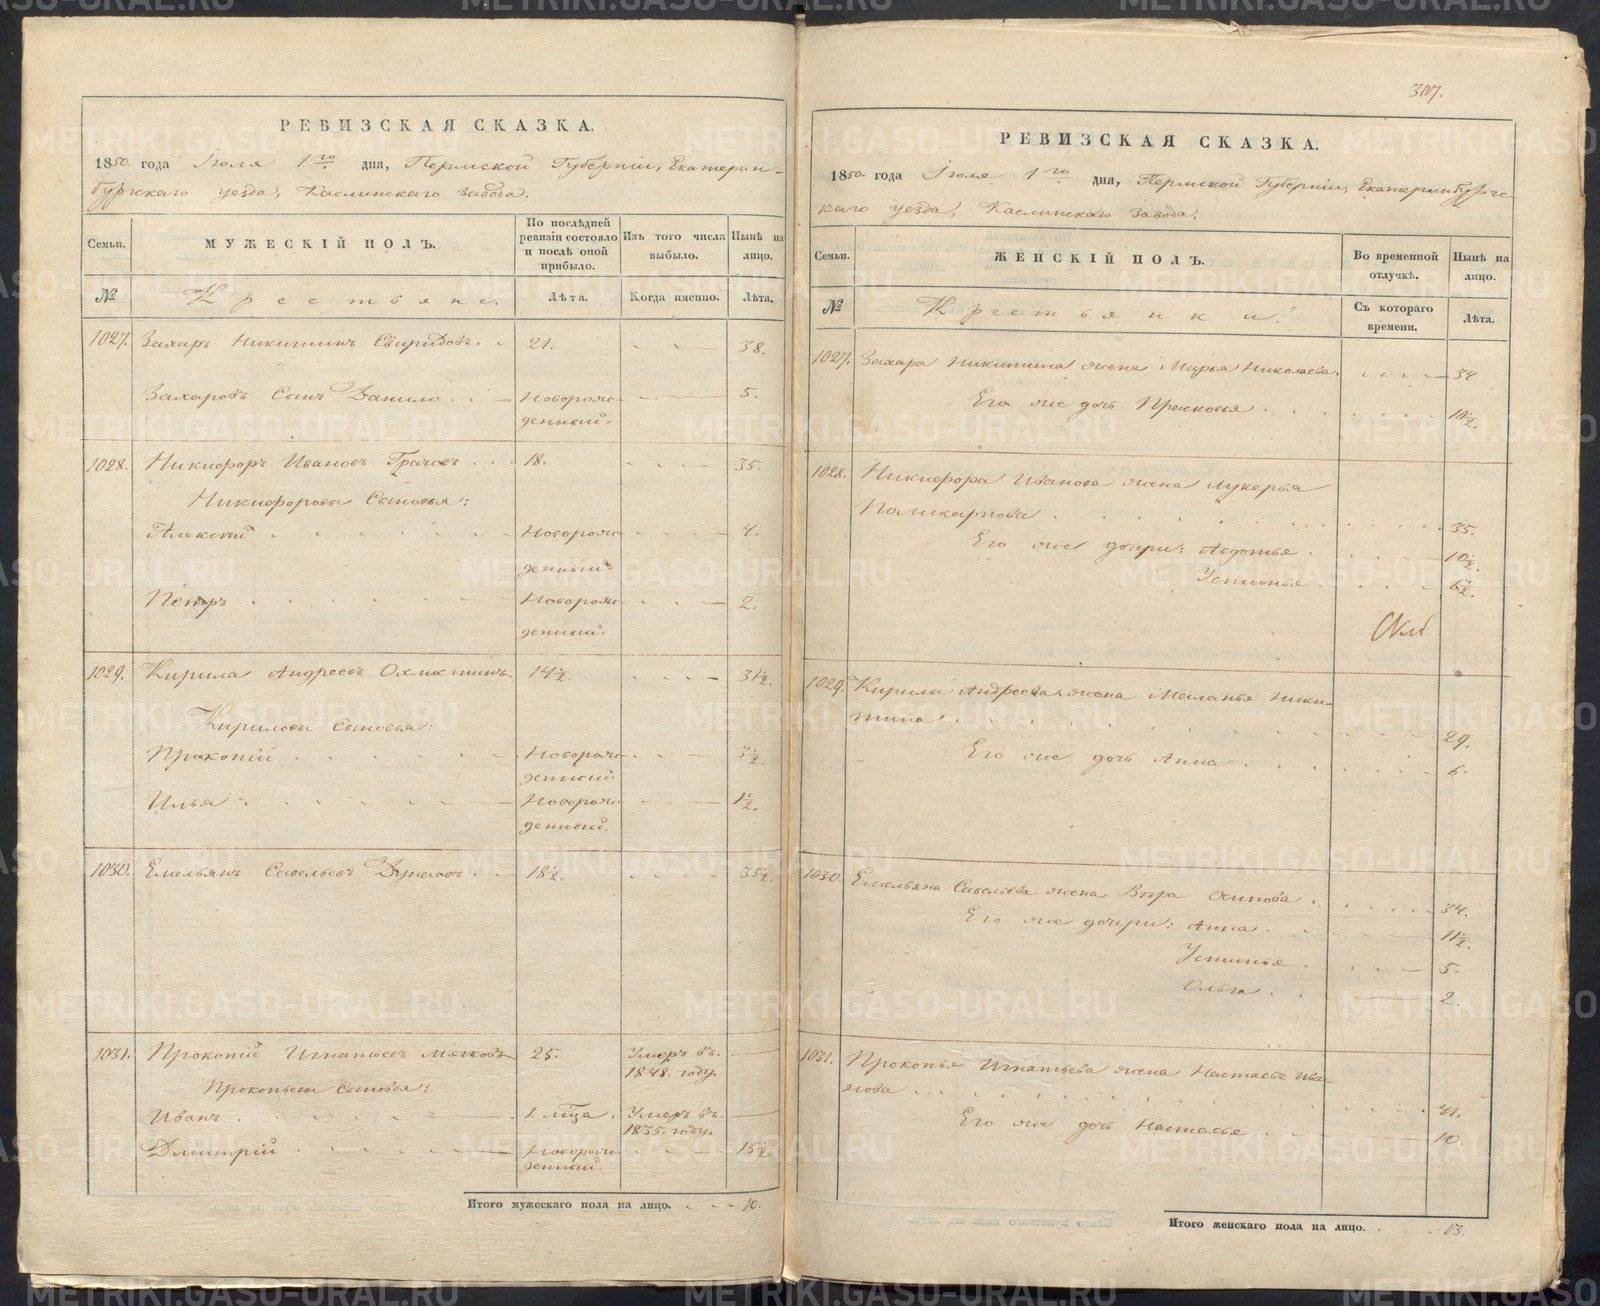 РЕВИЗСКАЯ СКАЗКА.
1850. года Іюля 1го дня, Пермской Губерніи, Екатерин-
бургскаго уезда, Каслинскаго завода.
Семьи.
МУЖЕСКІЙ ПОЛЪ.
По послѣдней ревизіи состояло и послѣ оной прибыло.
Изъ того числа выбыло.
Нынѣ на лицо.
№
Крестьяне.
Лѣта.
Когда именно.
Лѣта.
1027. Захаръ Никитинъ Свиридовъ. 21. 38.
Захаровъ Сынъ Данило Новорож- 5.
денный.
1028. Никифоръ Ивановъ Грачевъ 18. 35.
Никифоровы Сыновья:
Алексѣй Новорож- 4.
денный.
Петръ Новорож- 2.
денный.
1029. Кирила Андреевъ 14½. 31½.
Кириловы Сыновья:
Прокопій Новорож- 3½.
денный
Илья Новорож- ½.
денный.
1030. Емельянъ Савельевъ 18½. 35½.
1031. Прокопій Игнатьевъ Мягковъ 25. Умеръ въ
1848. году.
Прокопьевы Сыновья:
Иванъ 1. мѣсца. Умеръ въ
1835. году.
Дмитрій Новорож- 15½.
денный.
Итого мужескаго пола на лицо. 10.
307.
РЕВИЗСКАЯ СКАЗКА.
1850. года Іюля 1го дня, Пермской Губерніи, Екатеринбургс-
каго уезда, Каслинскаго завода.
Семьи.
ЖЕНСКІЙ ПОЛЪ.
Во временной отлучкѣ.
Нынѣ на лицо.
№
Крестьянки.
Съ котораго времени.
Лѣта.
1027. Захара Никитина жена Марья Николаева. 34
Его же дочь Прасковья 10½.
1028. Никифора Иванова жена Лукерья
Поликарпова 35.
Его же дочери: Авдотья 10½.
Устинья 6½.
1029. Кирилы Андреева жена Меланья Ники-
тина 29.
Его же дочь Анна 6.
1030. Емельяна Савельева жена Вѣра Осипова 34.
Его же дочери: Анна 11½.
Устинья 5.
Ольга 2.
1031. Прокопья Игнатьева жена Настасья Ива-
нова 41.
Его же дочь Настасья 10.
Итого женскаго пола на лицо. 13.
METRIKI.GASO-URAL.RU